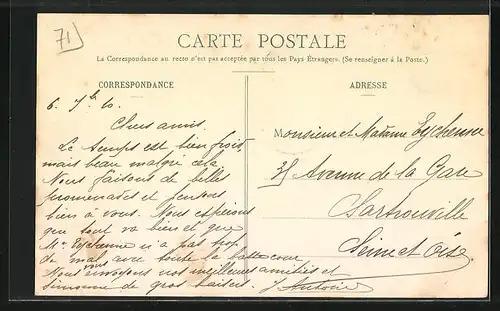 71
CARTE POSTALE
La Correspondance au recto n'est pas acceptée par tous les Pays Étrangers. (Se renseigner à la Poste.)
CORRESPONDANCE
ADRESSE
6. 7bre 10.
Chers amis.
Le temps est bien frois,
mais beau malgré cela
Nous faisons de belles
promenades et pensons
bien à vous. Nous espérons
que tout va bien et que
Me Eychenne n'a pas trop
de mal avec toute la basse cour
Nous vous envoyons nos meilleures amitiés et
Simonne de gros baisers. J. Antoine
Monsieur et Madame Eychenne
35 Avenue de la Gare
Sartrouville
Seine et Oise